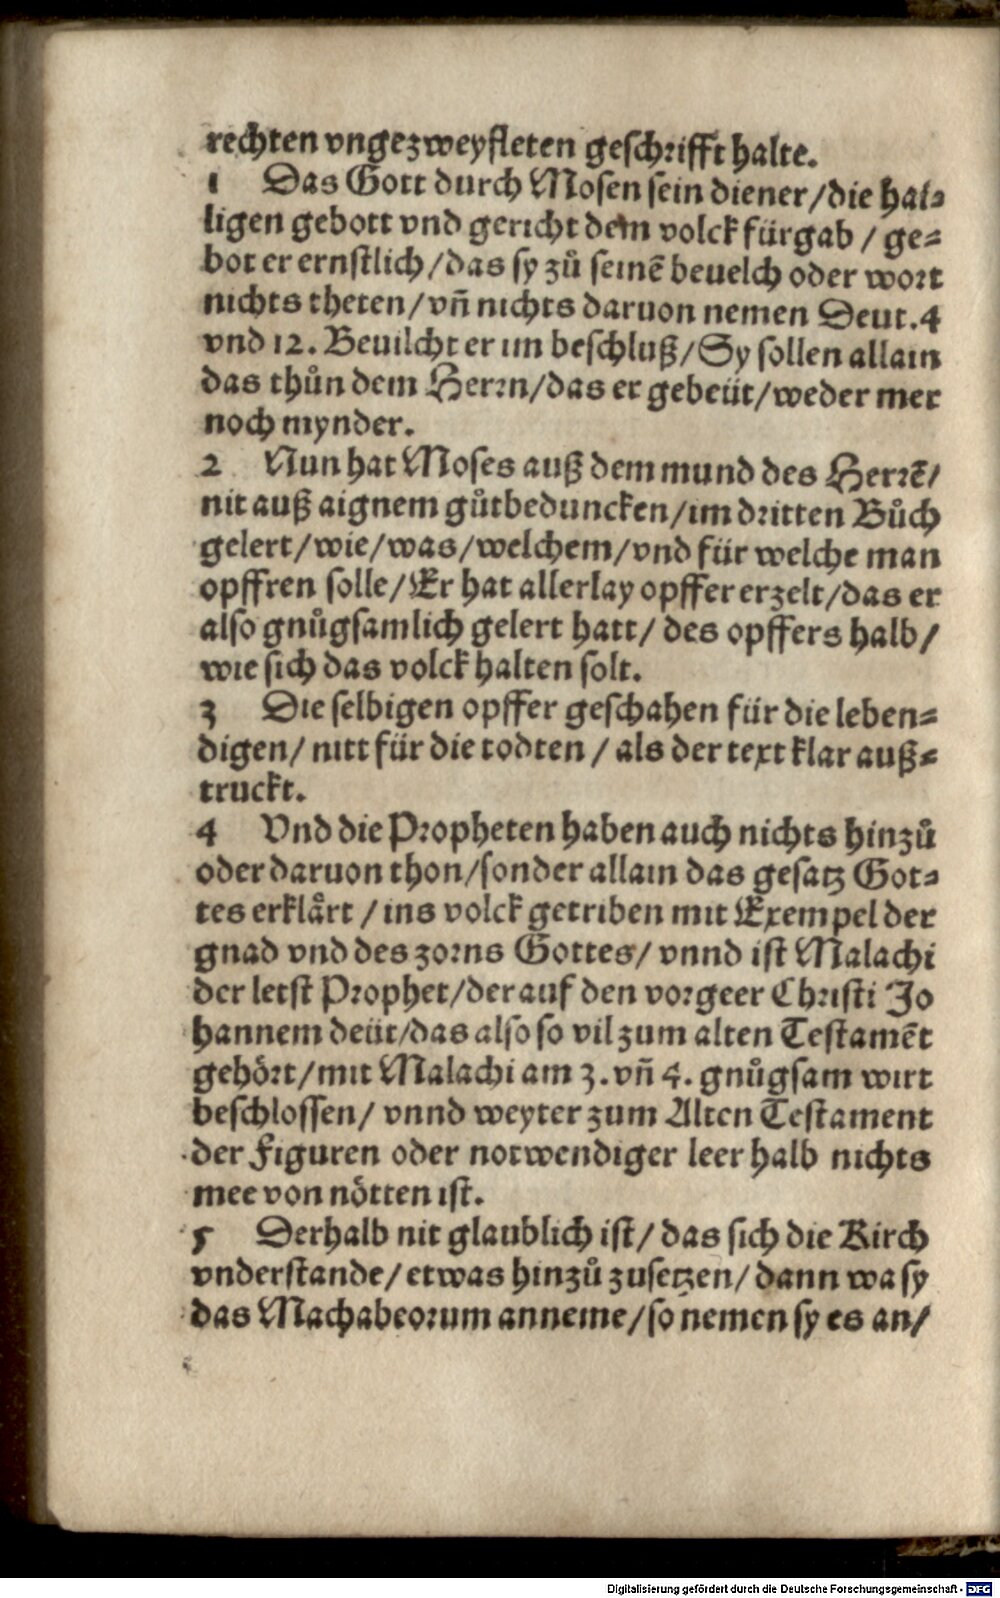 rechten vngezweyfleten geschrifft halte.
1 Das Gott durch Mosen sein diener/die hai⸗
ligen gebott vnd gericht dem volck fürgab / ge⸗
bot er ernstlich/das sy zů seinē beuelch oder wort
nichts theten/vñ nichts daruon nemen Deut.4
vnd 12. Beuilcht er im beschluß/Sy sollen allain
das thůn dem Herrn/das er gebeüt/weder mer
noch mynder.
2 Nun hat Moses auß dem mund des Herrē/
nit auß aignem gůtbeduncken/im dritten Bůch
gelert/wie/was/welchem/vnd für welche man
opffren solle/Er hat allerlay opffer erzelt/das er
also gnůgsamlich gelert hatt/ des opffers halb/
wie sich das volck halten solt.
3 Die selbigen opffer geschahen für die leben⸗
digen/ nitt für die todten / als der text klar auß⸗
truckt.
4 Vnd die Propheten haben auch nichts hinzů
oder daruon thon/sonder allain das gesatz Got⸗
tes erklårt / ins volck getriben mit Exempel der
gnad vnd des zorns Gottes/ vnnd ist Malachi
der letst Prophet/der auf den vorgeer Christi Jo
hannem deüt/das also so vil zum alten Testamēt
gehört/mit Malachi am 3.vñ 4. gnůgsam wirt
beschlossen/ vnnd weyter zum Alten Testament
der Figuren oder notwendiger leer halb nichts
mee von nötten ist.
5 Derhalb nit glaublich ist/ das sich die Kirch
vnderstande/etwas hinzů zusetzen/ dann wa sy
das Machabeorum anneme/so nemen sy es an/
Digitalisierung gefördert durch die Deutsche Forschungsgemeinschaft - DFG